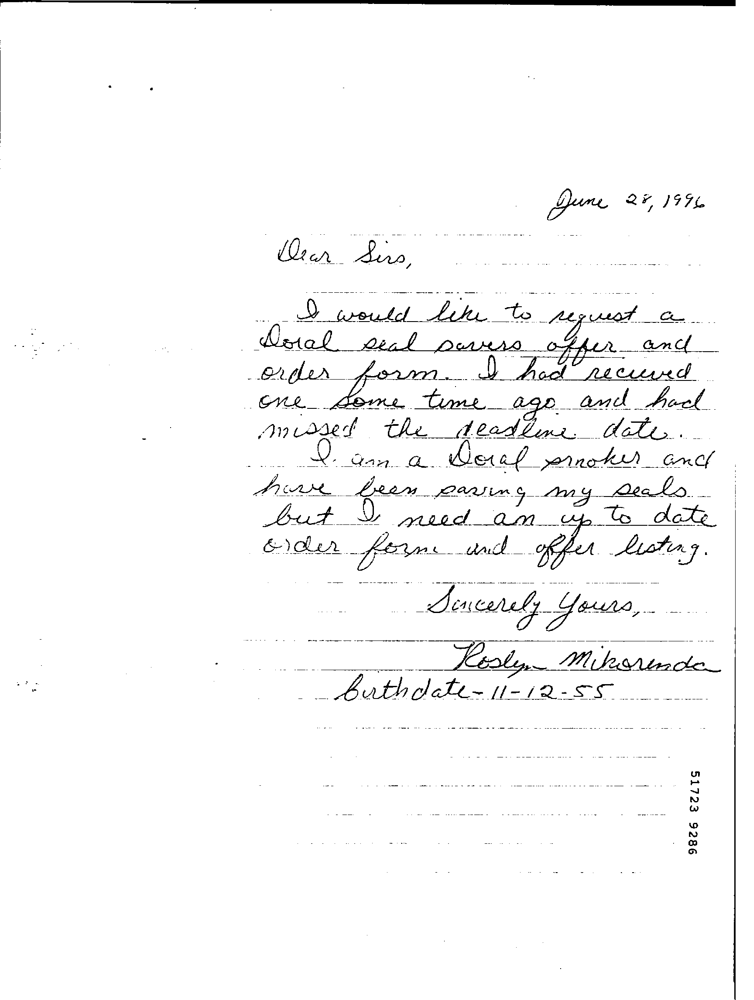 June 28, 1996
Dear Sirs,
I would like to request a
Doral seal savers offer and
order form. I had recieved
one some time ago and had
missed the deadline date.
I am a Doral smoker and
have been saving my seals
but I need an up to date
order form and offer listing.
Sincerely Yours,
Roslyn Mikorenda
birthdate-11-12-55
51723 9286